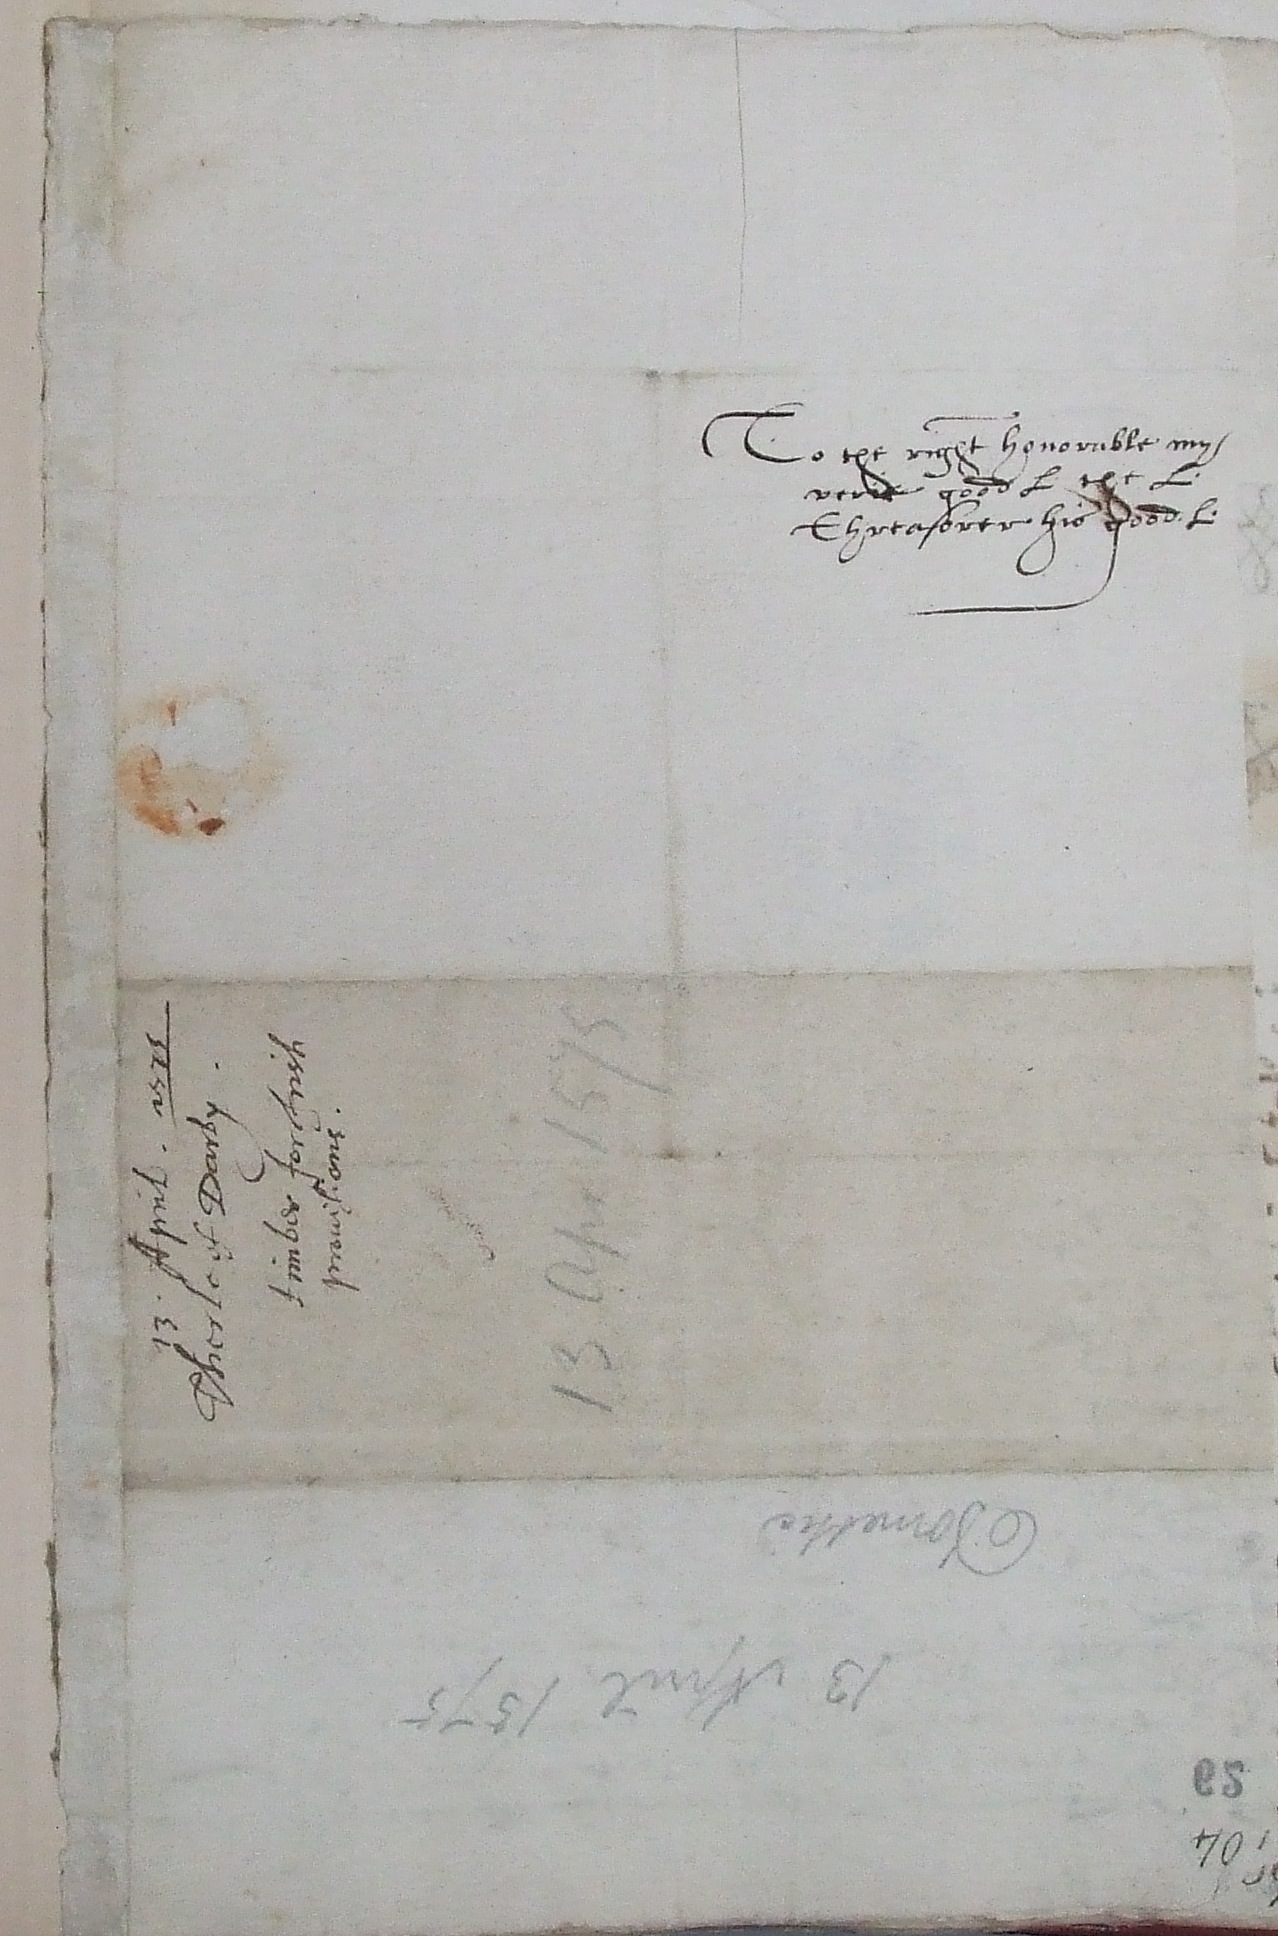 To the right honorable my
verie good L the L
Threasorer his good L
13. April. 1575
Therle of Darby.
timber for Irish
provisions.
13 Apr 1575
Domestic
13 April 1575
29
104